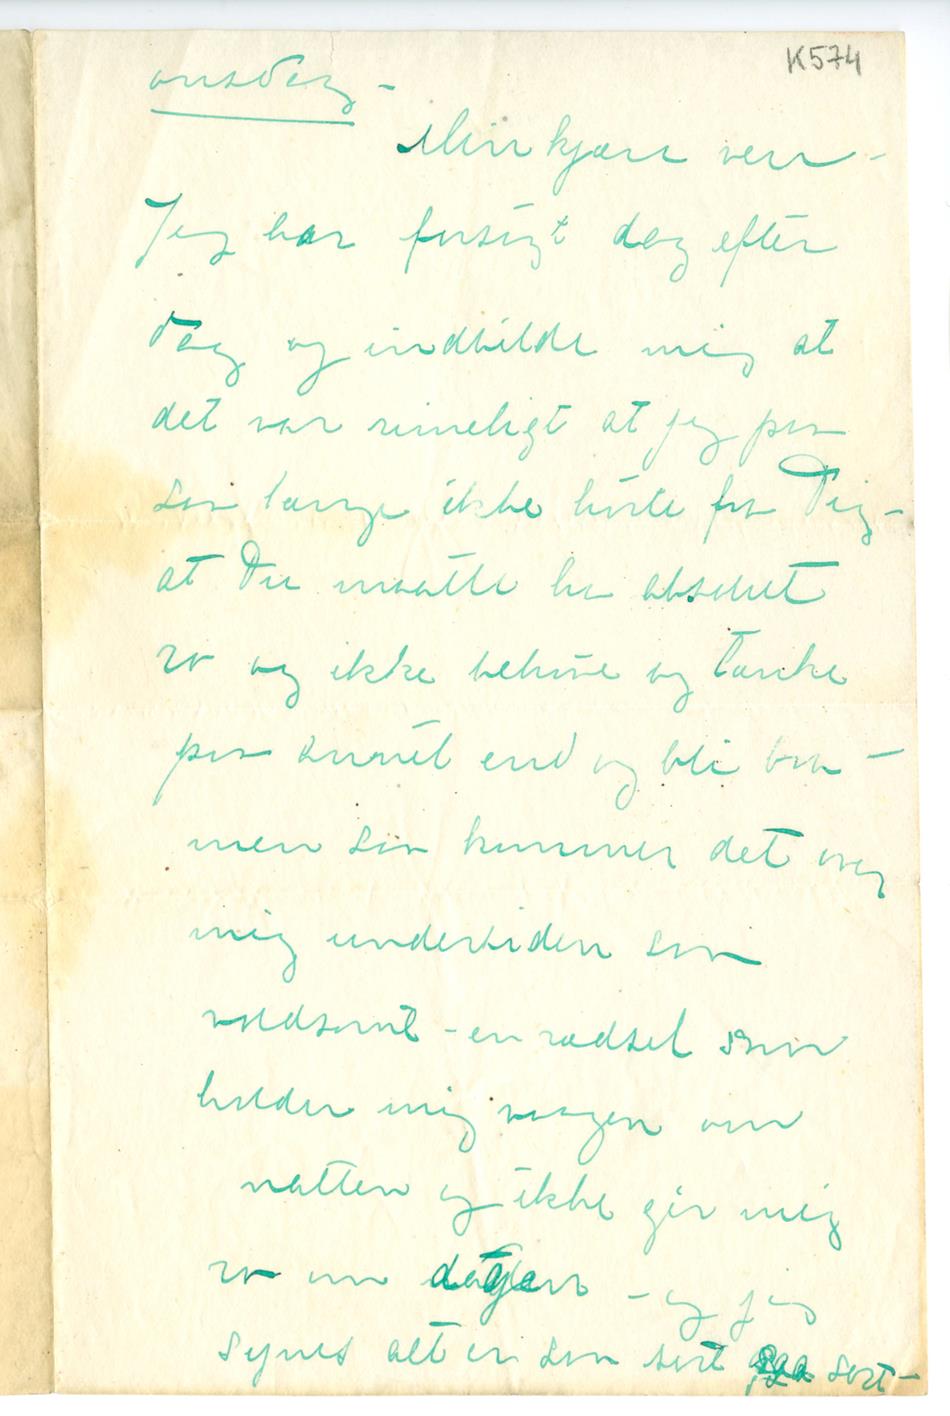 K574
onsdag –
Min kjære ven –
Jeg har forsøgt dag efter
dag og indbilde mig at
det var rimeligt at jeg paa
saa længe ikke hørte fra Dig –
at Du maatte ha absolut
ro og ikke behøve og tænke
paa annet end og bli bra –
men saa kommer det over
mig undertiden saa
voldsomt – en rædsel som
holder mig vaagen om
natten og ikke gir mig
ro om dagen – og jeg
synes alt er saa sort saa sort –